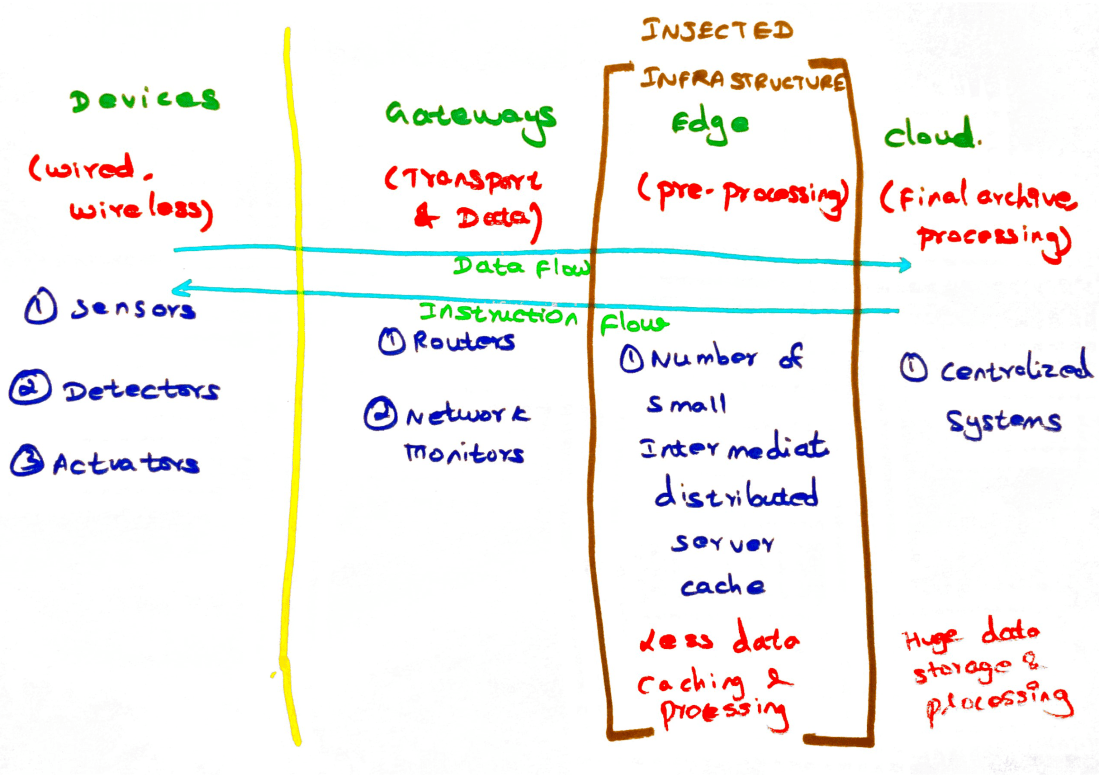 INJECTED
INFRASTRUCTURE
Devices
(wired,
wireless)
Gateways
(Transport
& Data)
Edge
(pre-processing)
cloud.
(Final archive,
processing)
Data Flow
Instruction Flow
① Sensors
② Detectors
③ Actuators
① Routers
② Network
Monitors
① Number of
small
Intermediat
distributed
server
cache
Less data
Caching &
processing
① Centralized
Systems
Huge data
storage &
processing